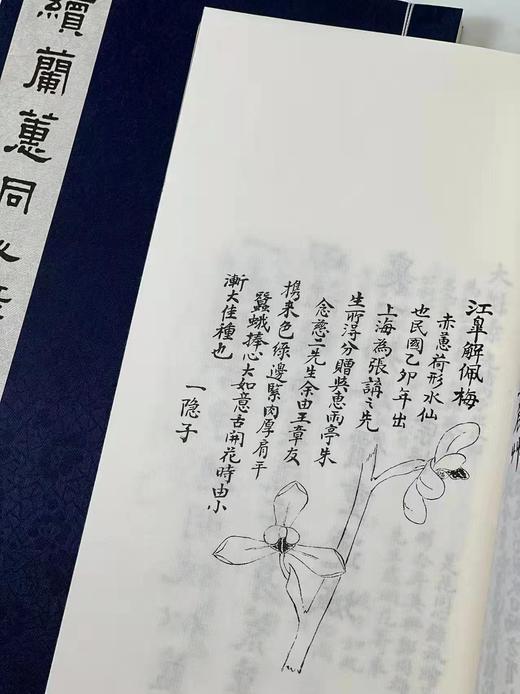 續蘭蕙同心
江皋解佩梅
赤蕙荷形水仙
也民國乙卯年出
上海為張講之先
生所得分贈吳惠雨亭朱
念慈二先生余由王章友
携来色绿邊緊肉厚肩平
蠶蛾捧心大如意古開花時由小
漸大佳種也
一隐子